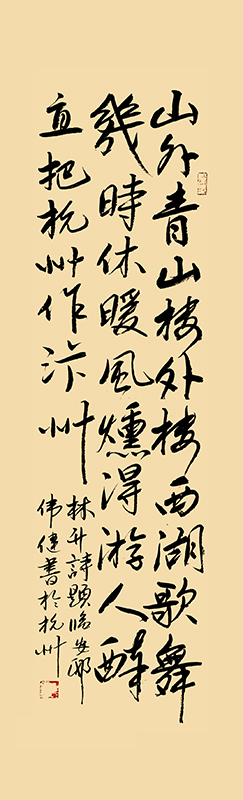 山外青山楼外楼西湖歌舞
幾時休暖風燻得游人醉
直把杭州作汴州
林升詩題临安邸
伟健書於杭州